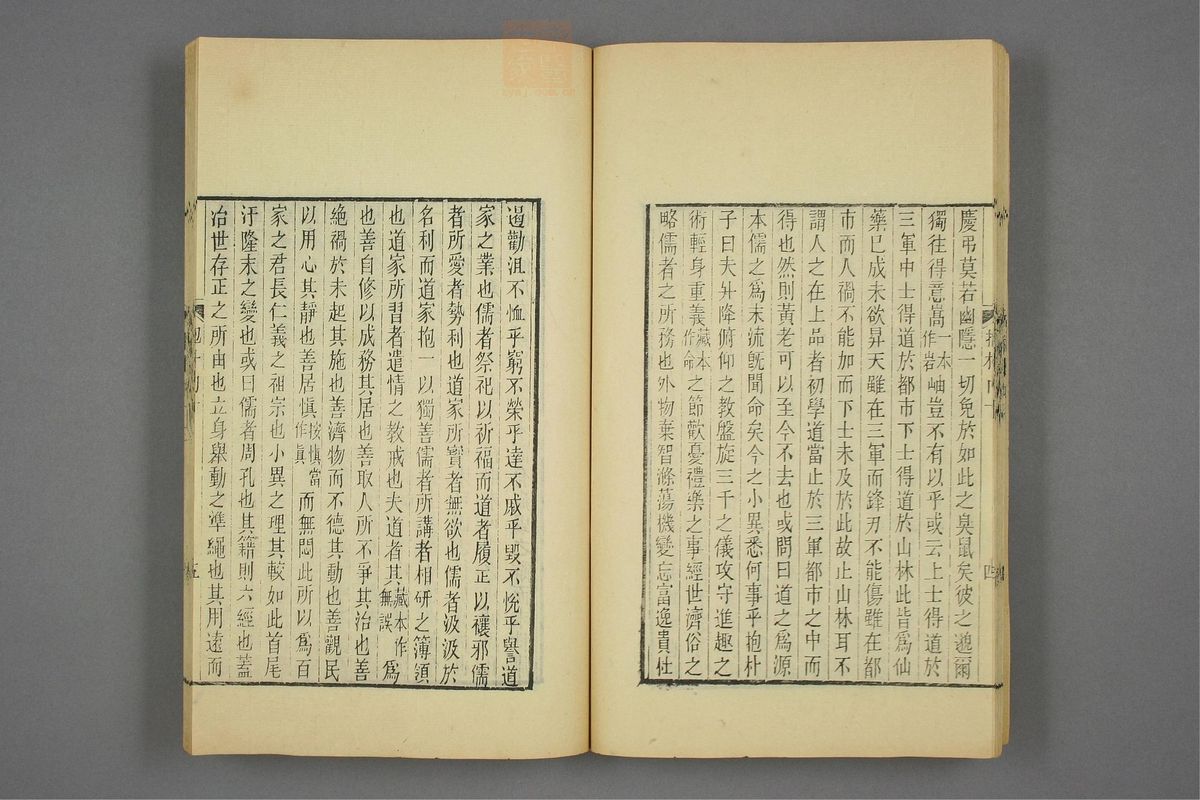 慶弔莫若幽隱一切免於如此之臭鼠矣彼之邈爾
獨往得意嵩一本作岩岫豈不有以乎或云上士得道於
三軍中士得道於都市下士得道於山林此皆為仙
藥已成未欲昇天雖在三軍而鋒刃不能傷雖在都
市而人禍不能加而下士未及於此故止山林耳不
謂人之在上品者初學道當止於三軍都市之中而
得也然則黃老可以至今不去也或問曰道之為源
本儒之為末流旣聞命矣今之小異悉何事乎抱朴
子曰夫升降俯仰之教盤旋三千之儀攻守進趣之
術輕身重義藏本作命之節歡憂禮樂之事經世濟俗之
略儒者之所務也外物棄智滌蕩機變忘富逸貴杜
遏勸沮不恤乎窮不榮乎達不戚乎毀不悅乎譽道
家之業也儒者祭祀以祈福而道者履正以禳邪儒
者所愛者勢利也道家所寶者無欲也儒者汲汲於
名利而道家抱一以獨善儒者所講者相研之簿領
也道家所習者遣情之教戒也夫道者其藏本作無誤為
也善自修以成務其居也善取人所不爭其治也善
絕禍於未起其施也善濟物而不德其動也善觀民
以用心其靜也善居慎按慎當作真而無悶此所以為百
家之君長仁義之祖宗也小異之理其較如此首尾
汙隆未之變也或曰儒者周孔也其籍則六經也蓋
治世存正之所由也立身舉動之準繩也其用遠而